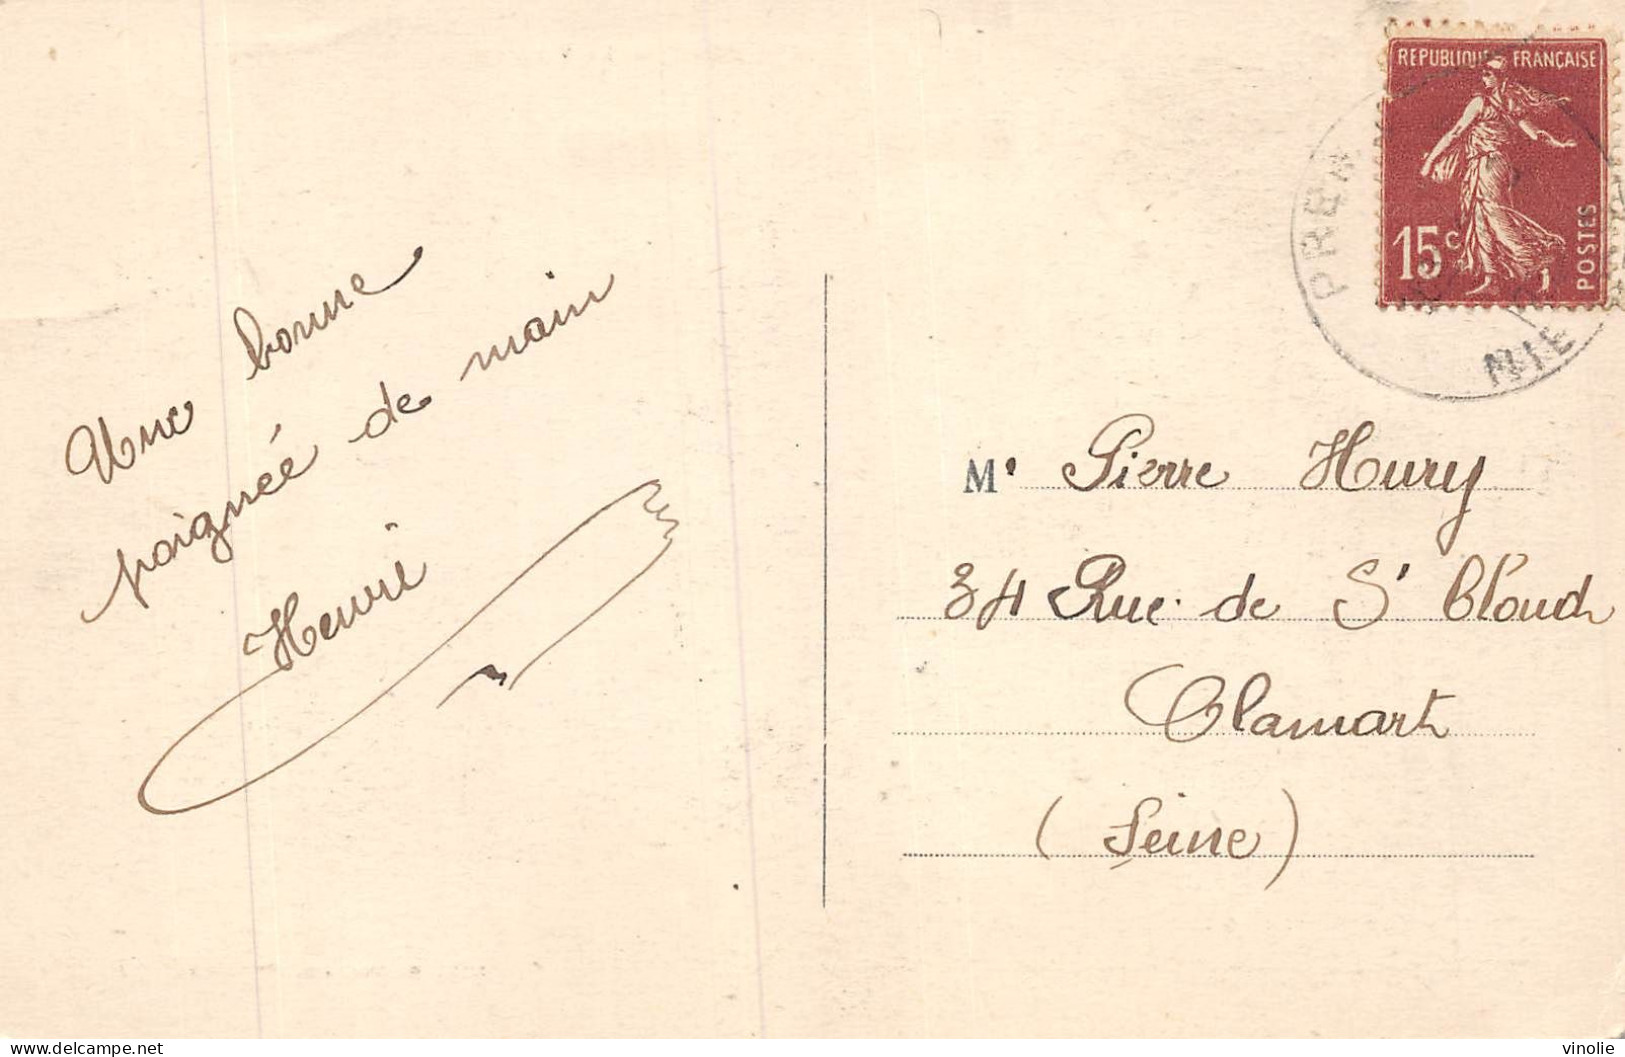 Une bonne
poignée de main
Henri
REPUBLIQUE FRANÇAISE
15c
POSTES
PREM
NIE
Mr Pierre Hury
34 Rue de St Cloud
Clamart
(Seine)
vinolie